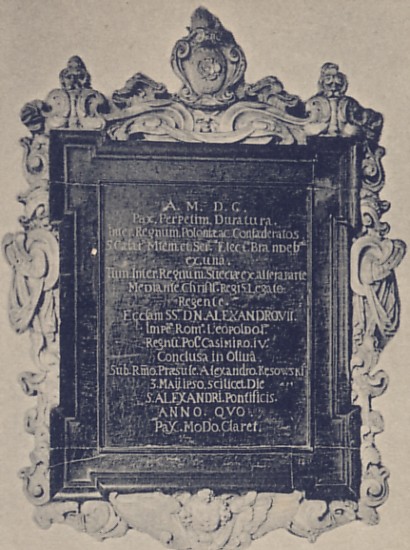 A. M. D. G.
Pax, Perpetim, Duratura.
Inter, Regnum, Poloniæ, ac, Confæderatos.
S. Cæsar. Mtem. et Ser. Elect. Brandeb.
ex, una.
Tum, Inter, Regnum, Sueciæ, ex, altera parte
Mediante Christ. Regis, Legato
Regente.
EccIam SS. D.N. ALEXANDRO. VII.
Impe. Rom. Leopoldo I.
Regnu. Pol. Casimiro. IV.
Conclusa in Olivâ
Sub. Rmo. Præsule. Alexandro. Kęsowski
3. Maij ipso, scilicet, Die
S. ALEXANDRI. Pontificis.
ANNO. QVO.
PaX. MoDo. CLaret.